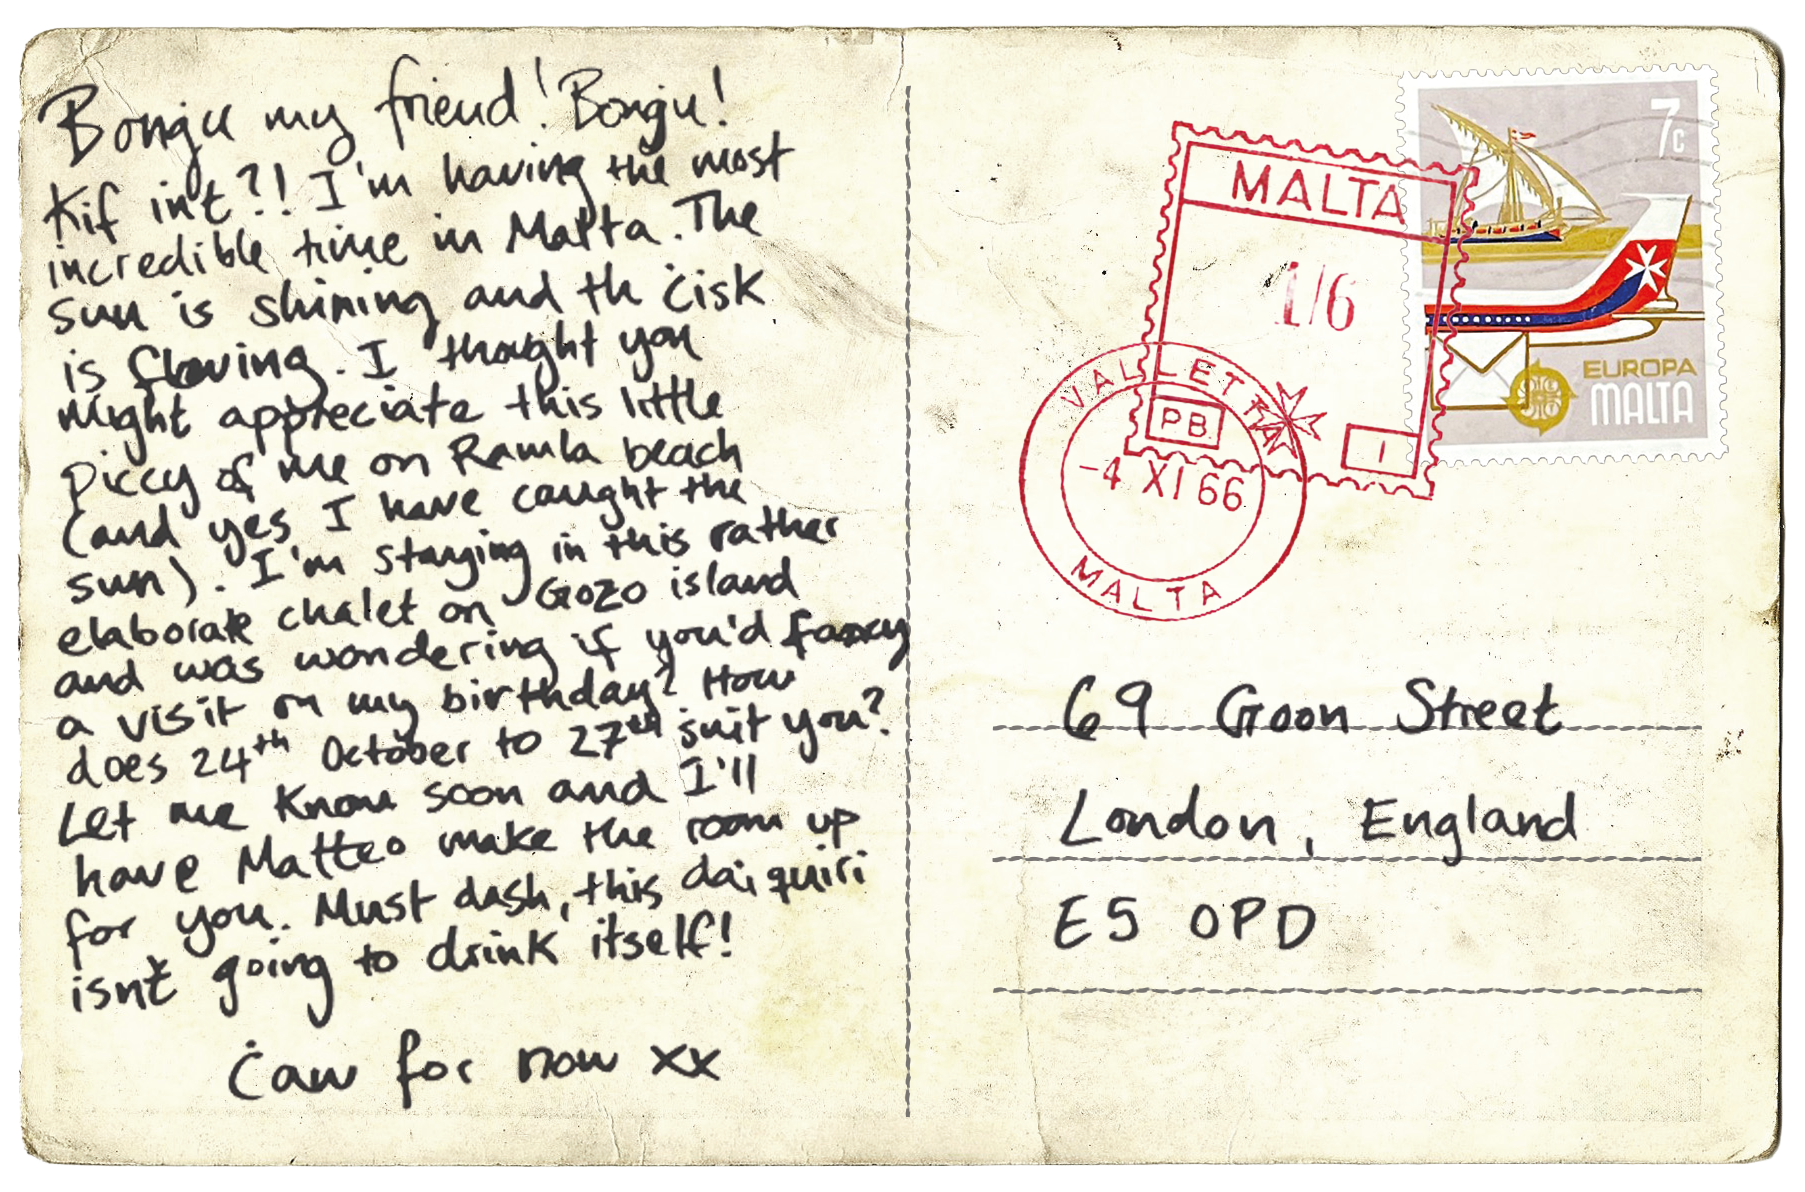 Bongu my friend! Bongu!
Kif int?! I'm having the most
incredible time in Malta. The
sun is shining and th ċisk
is flowing. I thought you
might appreciate this little
piccy of me on Ramla beach
(and yes I have caught the
sun). I'm staying in this rather
elaborate chalet on Gozo island
and was wondering if you'd fancy
a visit on my birthday? How
does 24th October to 27th suit you?
Let me know soon and I'll
have Matteo make the room up
for you. Must dash, this daiquiri
isn't going to drink itself!
ċaw for now xx
MALTA
1/6
VALLETTA
PB
1
-4 XI 66
MALTA
7c
EUROPA
MALTA
69 Goon Street
London, England
E5 0PD